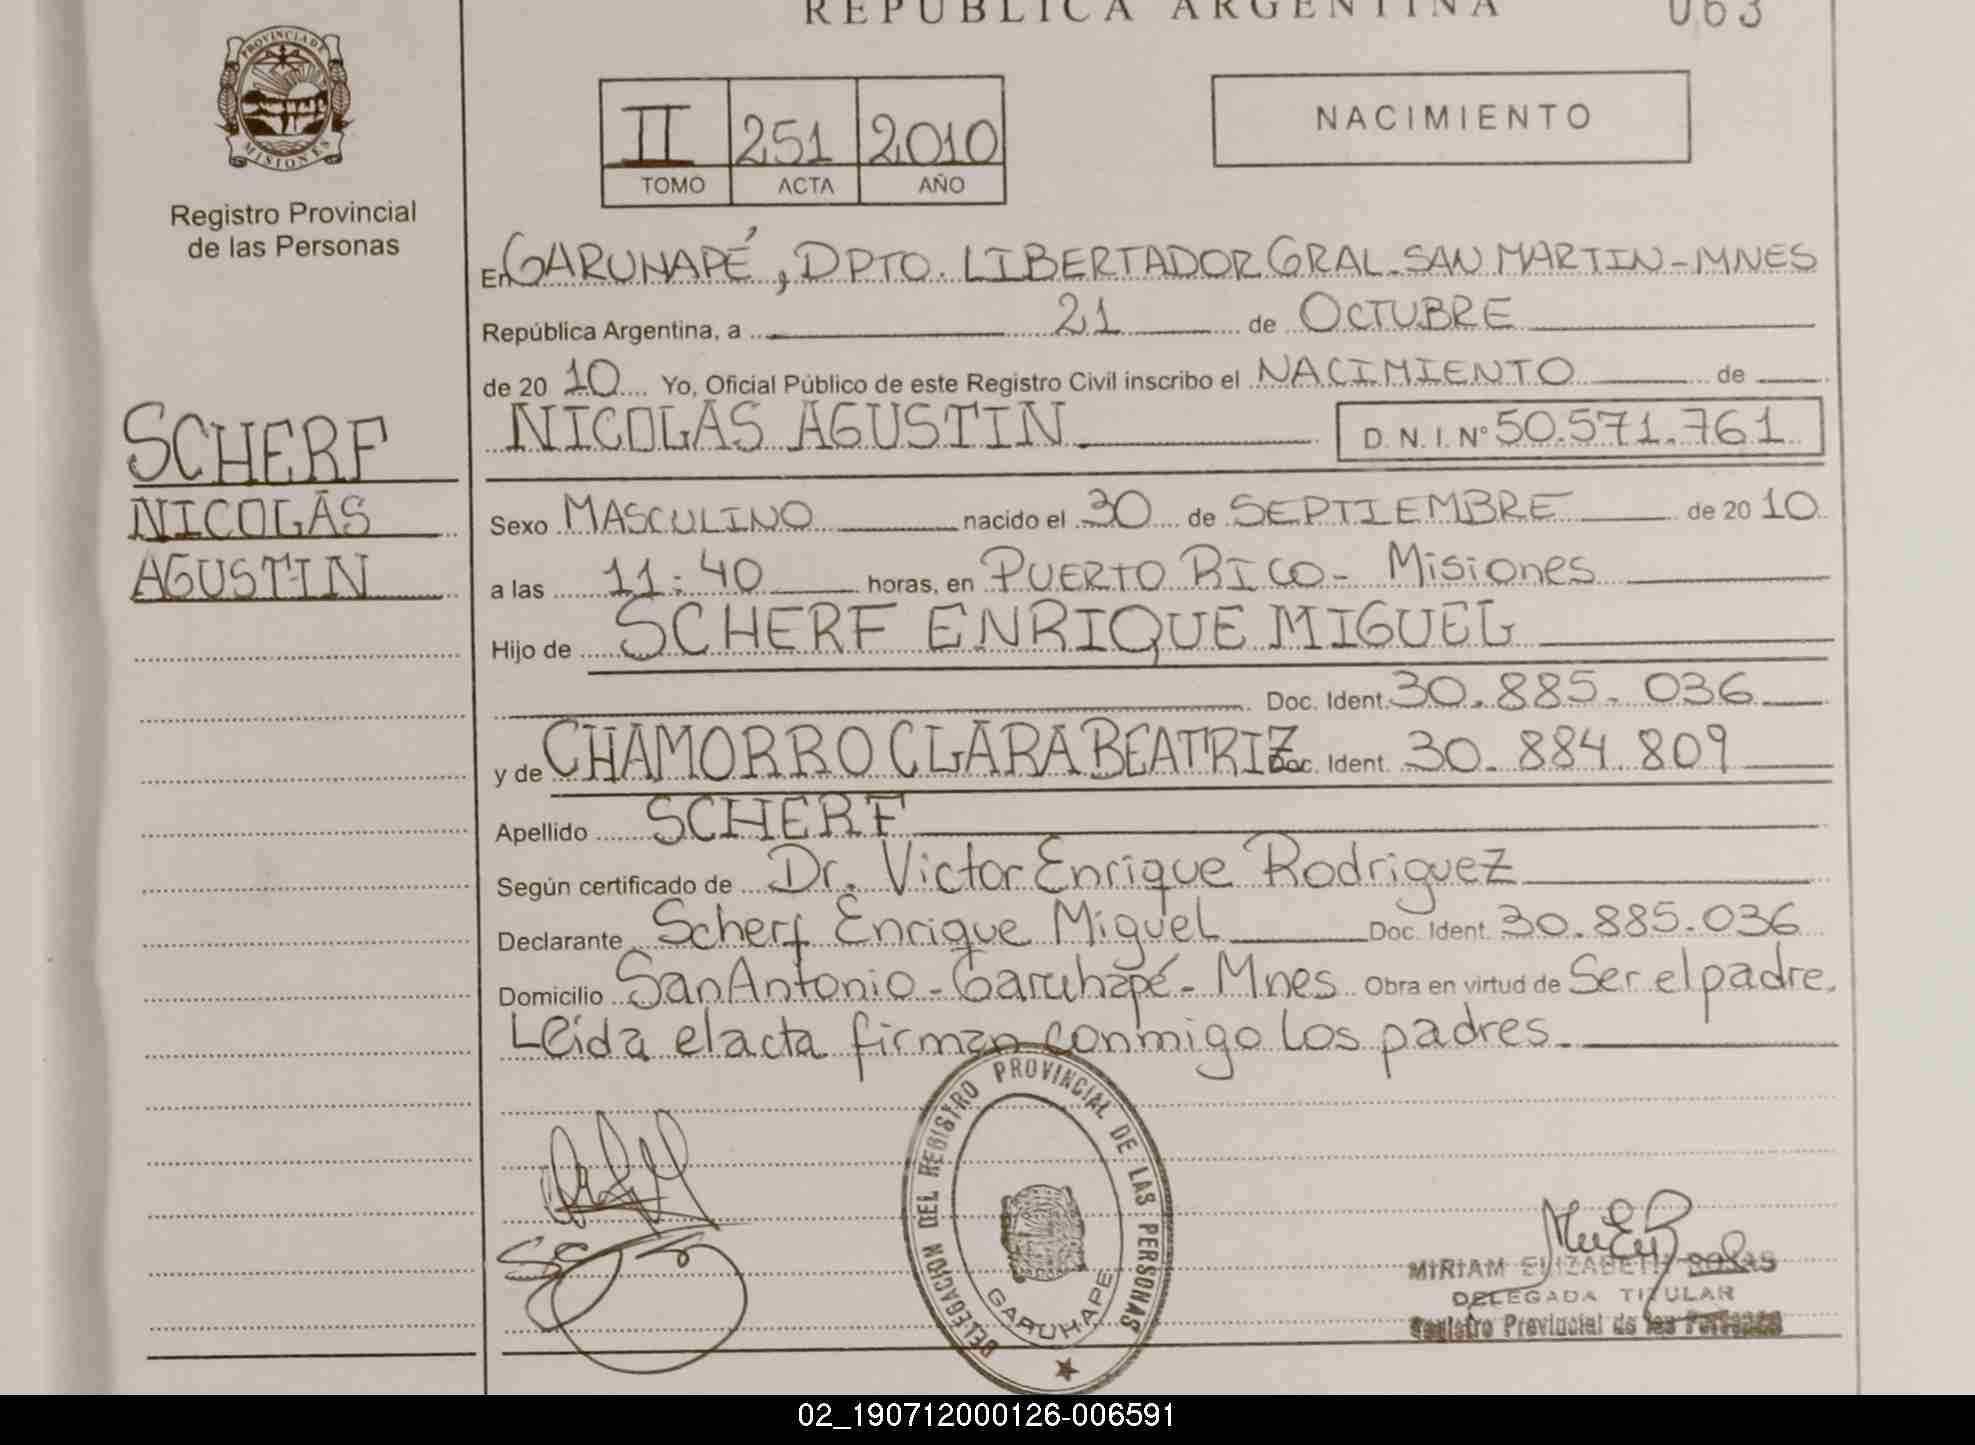 REPUBLICA ARGENTINA
063
PROVINCIA DE
MISIONES
Registro Provincial
de las Personas
II 251 2010
TOMO ACTA AÑO
NACIMIENTO
En GARUHAPÉ, DPTO. LIBERTADOR GRAL. SAN MARTIN - MNES
República Argentina, a 21 de OCTUBRE
de 20 10 Yo, Oficial Público de este Registro Civil inscribo el NACIMIENTO de
NICOLAS AGUSTIN D.N.I. Nº 50.571.761
SCHERF
NICOLAS
AGUSTIN
Sexo MASCULINO nacido el 30 de SEPTIEMBRE de 20 10
a las 11:40 horas, en PUERTO RICO - Misiones
Hijo de SCHERF ENRIQUE MIGUEL
Doc. Ident. 30.885.036
y de CHAMORRO CLARA BEATRIZ Doc. Ident. 30.884.809
Apellido SCHERF
Según certificado de Dr. Victor Enrique Rodriguez
Declarante Scherf Enrique Miguel Doc. Ident. 30.885.036
Domicilio San Antonio - Garuhapé - Mnes Obra en virtud de Ser el padre.
Leída el acta firman conmigo los padres.
DELEGACION DEL REGISTRO PROVINCIAL DE LAS PERSONAS
GARUHAPE
MIRIAM ELIZABETH
DELEGADA TITULAR
Registro Provincial de las Personas
02_190712000126-006591